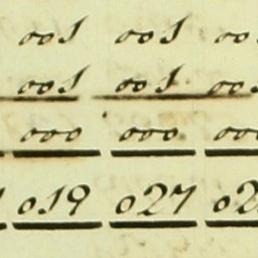 001 001 00
001 001 00
000 000 00
019 027 02